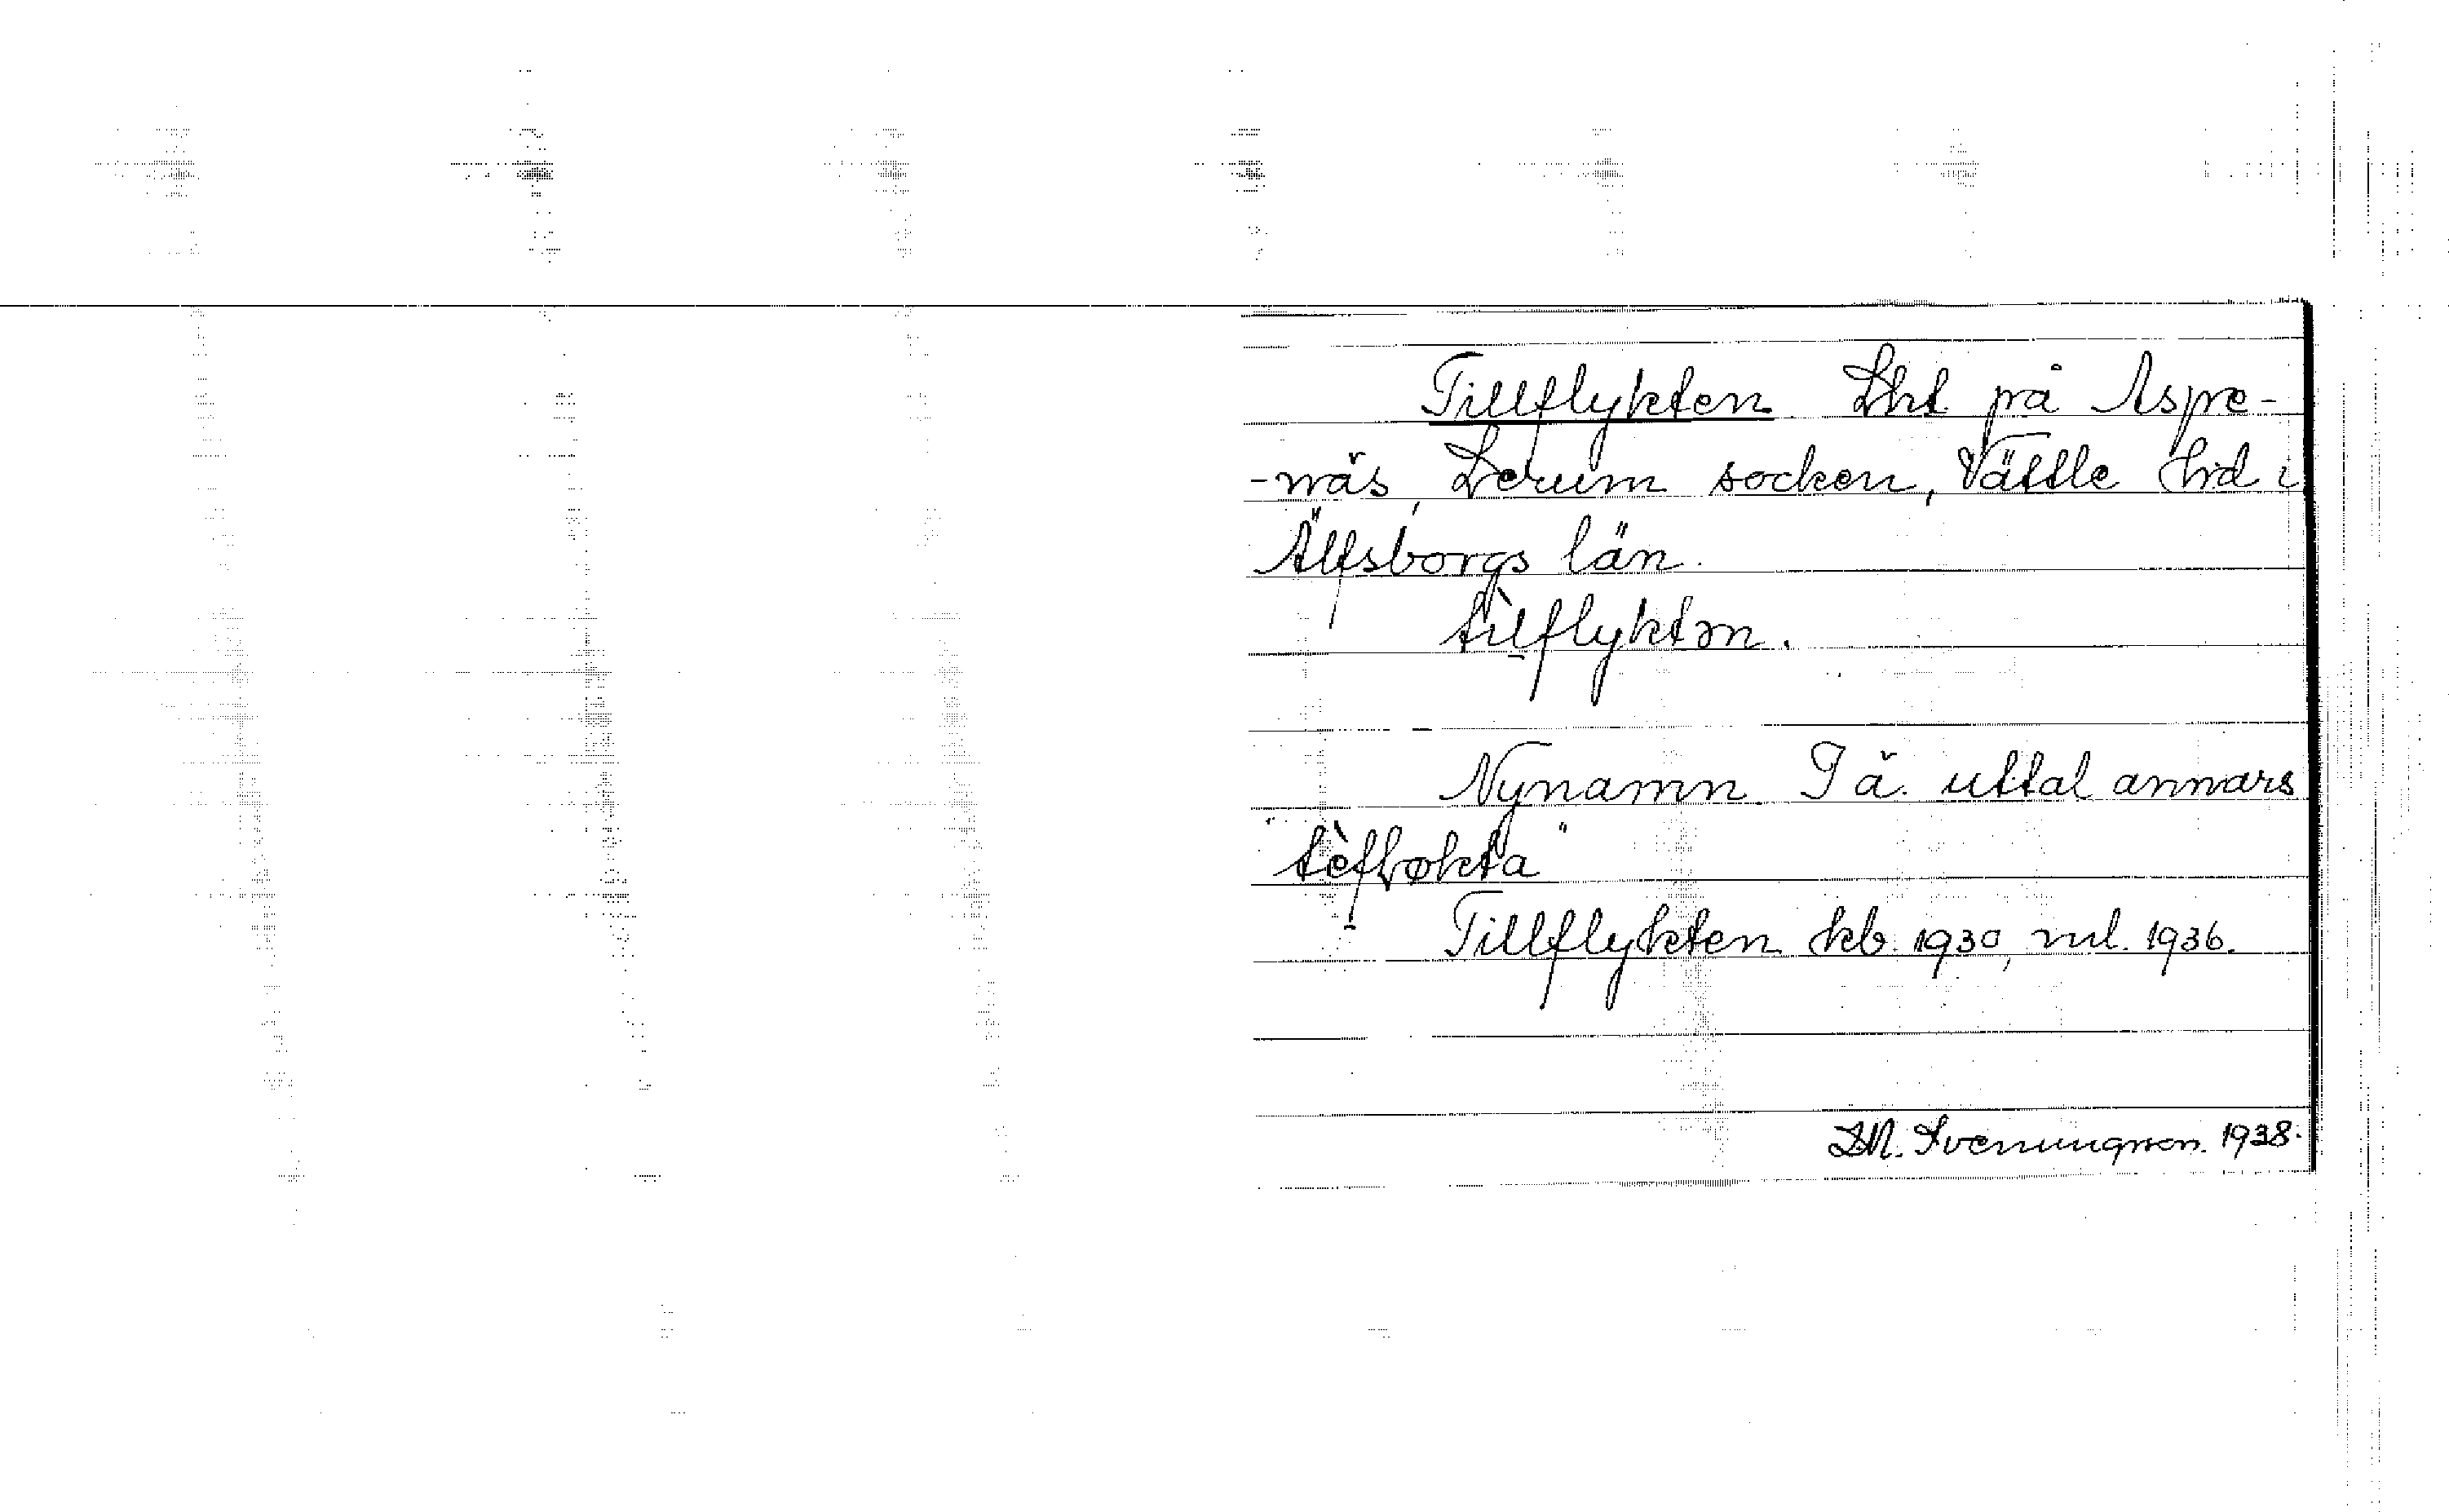 Tillflykten Lht på Aspe-
-näs, Lerum socken, Vättle hd i
Älfsborgs län.
tìlflyktən.
Nynamn. I ä. uttal annars
"tèfłøkta"
Tillflykten kb. 1930, ml. 1936.
D.N. Svenungsson. 1938.